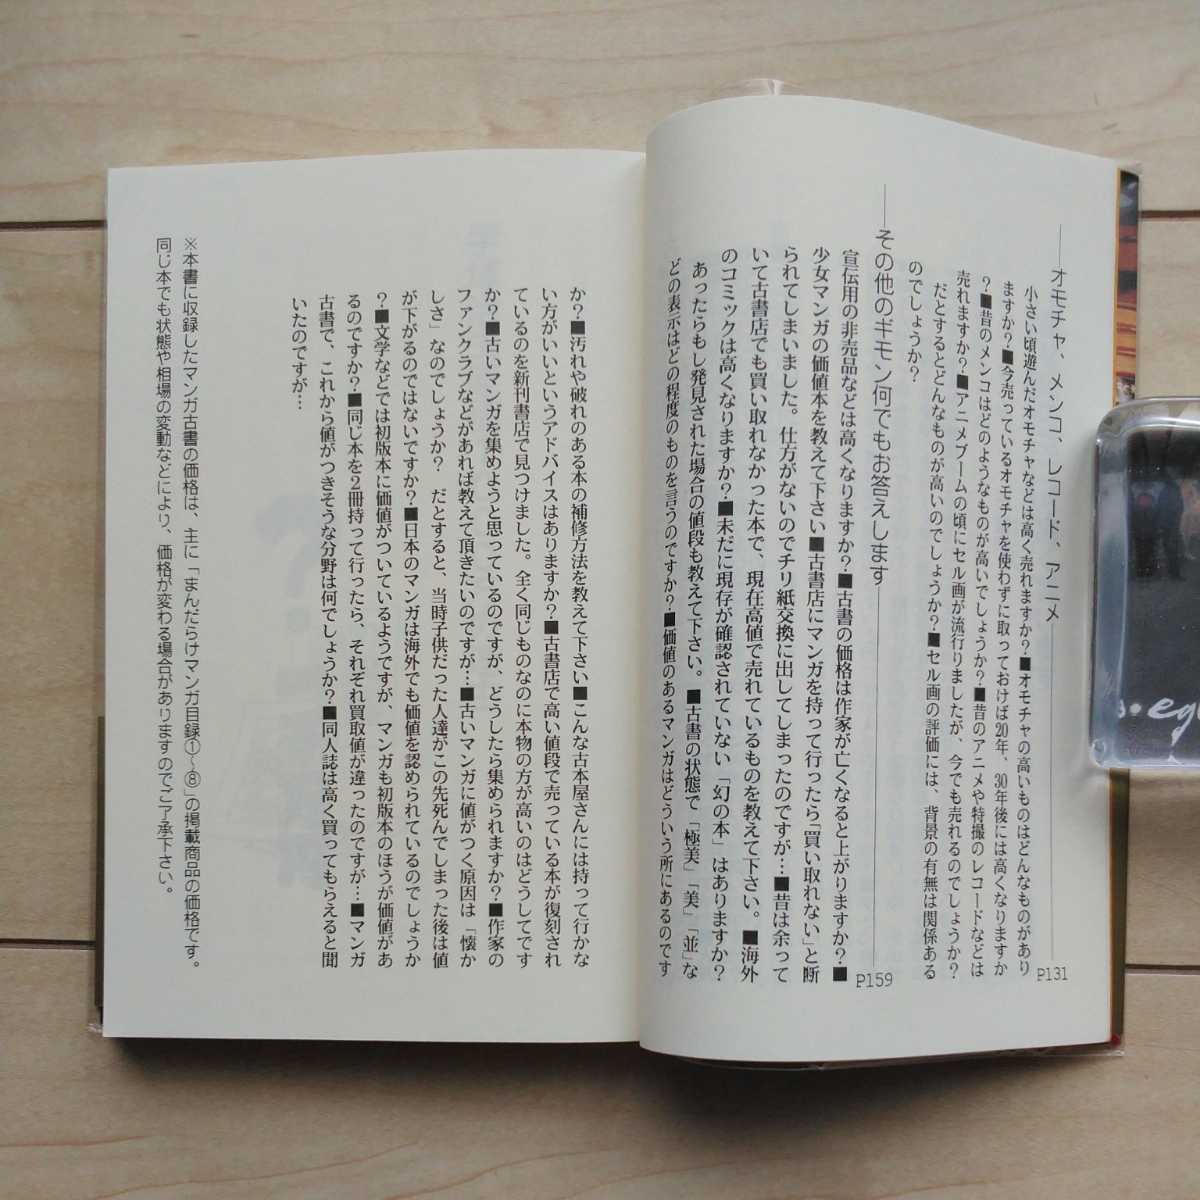 オモチャ、メンコ、レコード、アニメ
P131
小さい頃遊んだオモチャなどは高く売れますか?■オモチャの高いものはどんなものがあり
ますか?■今売っているオモチャを使わずに取っておけば20年、30年後には高くなりますか
?■昔のメンコはどのようなものが高いでしょうか?■昔のアニメや特撮のレコードなどは
売れますか?■アニメブームの頃にセル画が流行りましたが、今でも売れるのでしょうか?
だとするとどんなものが高いのでしょうか?■セル画の評価には、背景の有無は関係ある
のでしょうか?
その他のギモン何でもお答えします
P159
宣伝用の非売品などは高くなりますか?■古書の価格は作家が亡くなると上がりますか?■
少女マンガの価値本を教えて下さい■古書店にマンガを持って行ったら「買い取れない」と断
られてしまいました。仕方がないのでチリ紙交換に出してしまったのですが…■昔は余って
いて古書店でも買い取れなかった本で、現在高値で売れているものを教えて下さい。■海外
のコミックは高くなりますか?■未だに現存が確認されていない「幻の本」はありますか?
あったらもし発見された場合の値段も教えて下さい。■古書の状態で「極美」「美」「並」な
どの表示はどの程度のものを言うのですか?■価値のあるマンガはどういう所にあるのです
か?■汚れや破れのある本の補修方法を教えて下さい■こんな古本屋さんには持って行かな
い方がいいというアドバイスはありますか?■古書店で高い値段で売っている本が復刻され
ているのを新刊書店で見つけました。全く同じものなのに本物の方が高いのはどうしてです
か?■古いマンガを集めようと思っているのですが、どうしたら集められますか?■作家の
ファンクラブなどがあれば教えて頂きたいのですが…■古いマンガに値がつく原因は「懐か
しさ」なのでしょうか? だとすると、当時子供だった人達がこの先死んでしまった後は値
が下がるのではないですか?■日本のマンガは海外でも価値を認められているのでしょうか
?■文学などでは初版本に価値がついているようですが、マンガも初版本のほうが価値があ
るのですか?■同じ本を2冊持って行ったら、それぞれ買取値が違ったのですが…■マンガ
古書で、これから値がつきそうな分野は何でしょうか?■同人誌は高く買ってもらえると聞
いたのですが…
※本書に収録したマンガ古書の価格は、主に「まんだらけマンガ目録①~⑧」の掲載商品の価格です。
同じ本でも状態や相場の変動などにより、価格が変わる場合がありますのでご了承下さい。